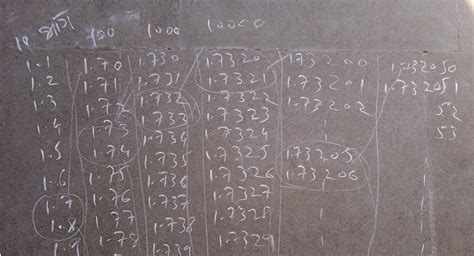 10 ভাগ 100 1000 10000
1.1 1.70 1.730 1.7320 1.73200 1.732050
1.2 1.71 1.731 1.7321 1.73201 1.732051
1.3 1.72 1.732 1.7322 1.73202 52
1.4 1.73 1.733 1.7323 53
1.5 1.74 1.734 1.7324
1.6 1.75 1.735 1.7325 1.73205
1.7 1.76 1.736 1.7326 1.73206
1.8 77 1.737 1.7327
1.78 1.738 1.7328
1.739 1.7329